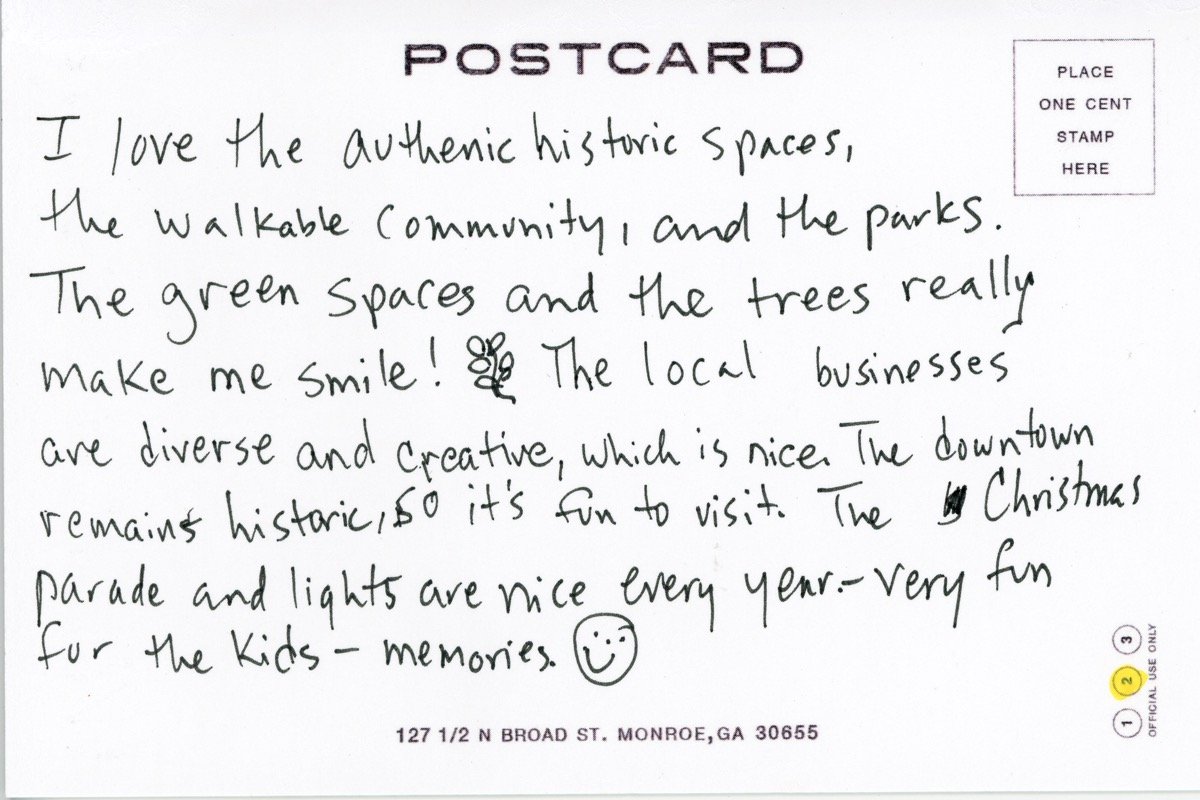 POSTCARD
PLACE
ONE CENT
STAMP
HERE
I love the authenic historic spaces,
the walkable community, and the parks.
The green spaces and the trees really
make me smile! The local businesses
are diverse and creative, which is nice. The downtown
remains historic, so it's fun to visit. The Christmas
parade and lights are nice every year.- very fun
for the kids - memories.
127 1/2 N BROAD ST. MONROE, GA 30655
1 2 3
OFFICIAL USE ONLY